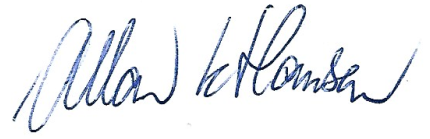 Allan K Hansen